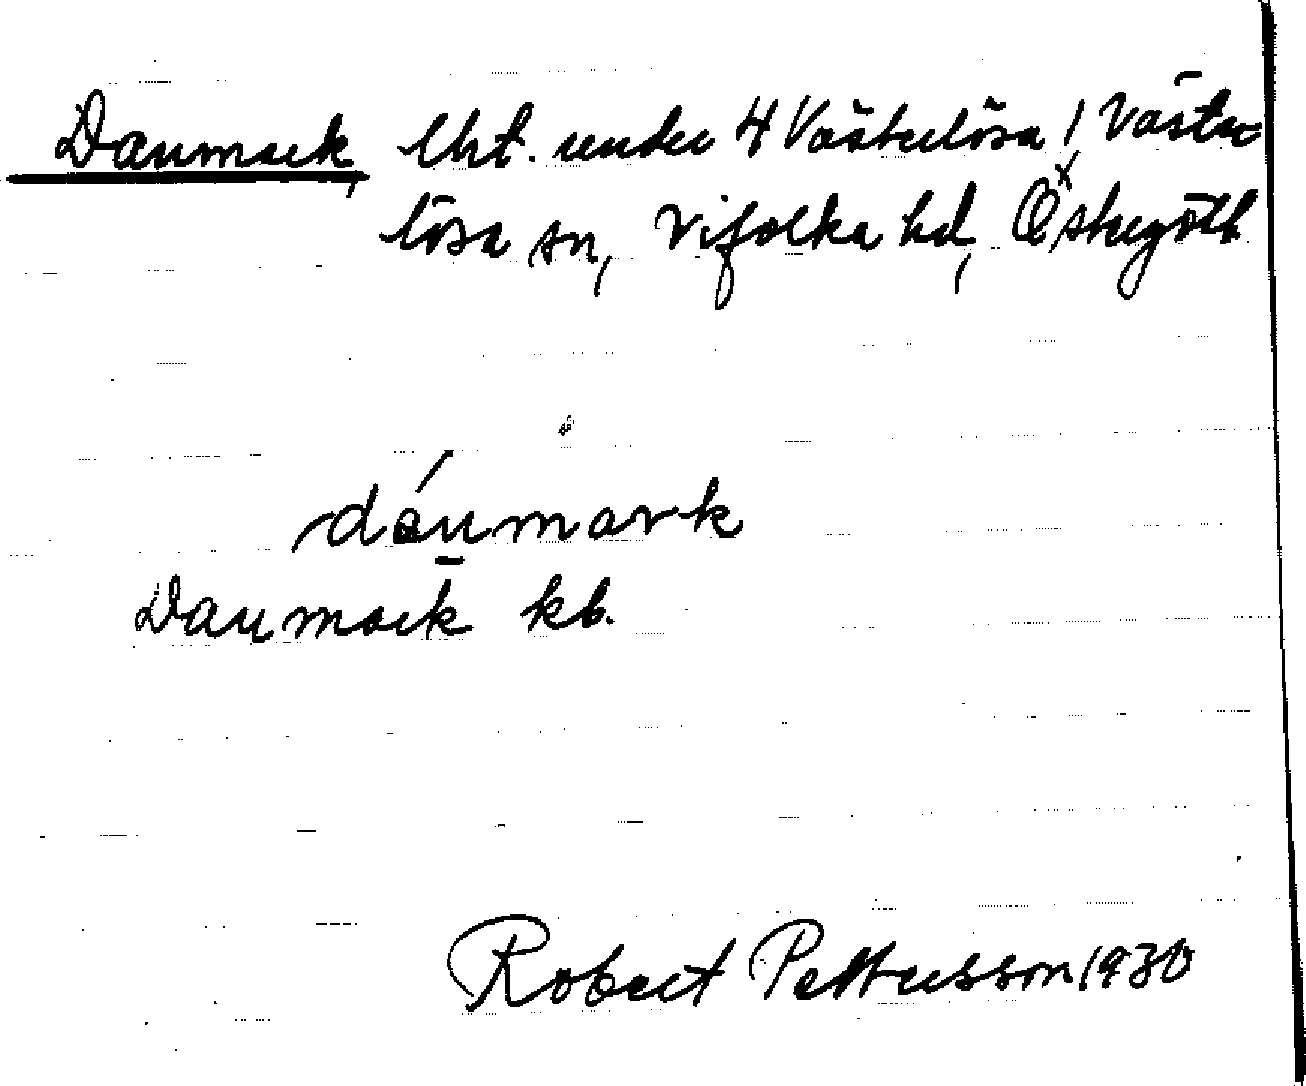 Danmark, lht. under 4 Västerlösa, Väster
lösa sn, Vifolka hd, Östergötl.
dánmark
Danmark kb.
Robert Pettersson 1930